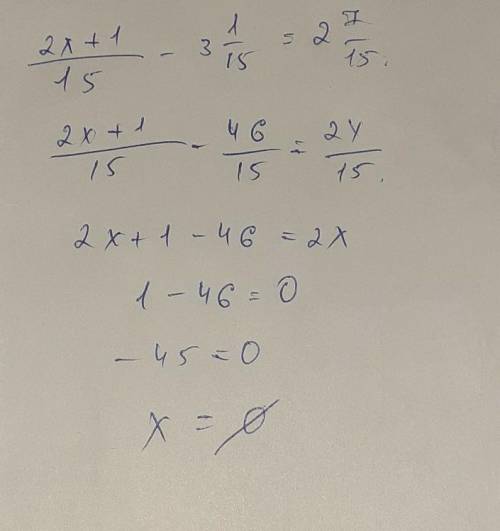 (2x+1)/15 - 3 1/15 = 2 7/15.
(2x+1)/15 - 46/15 = 2y/15.
2x+1-46=2x
1-46=0
-45=0
x=∅